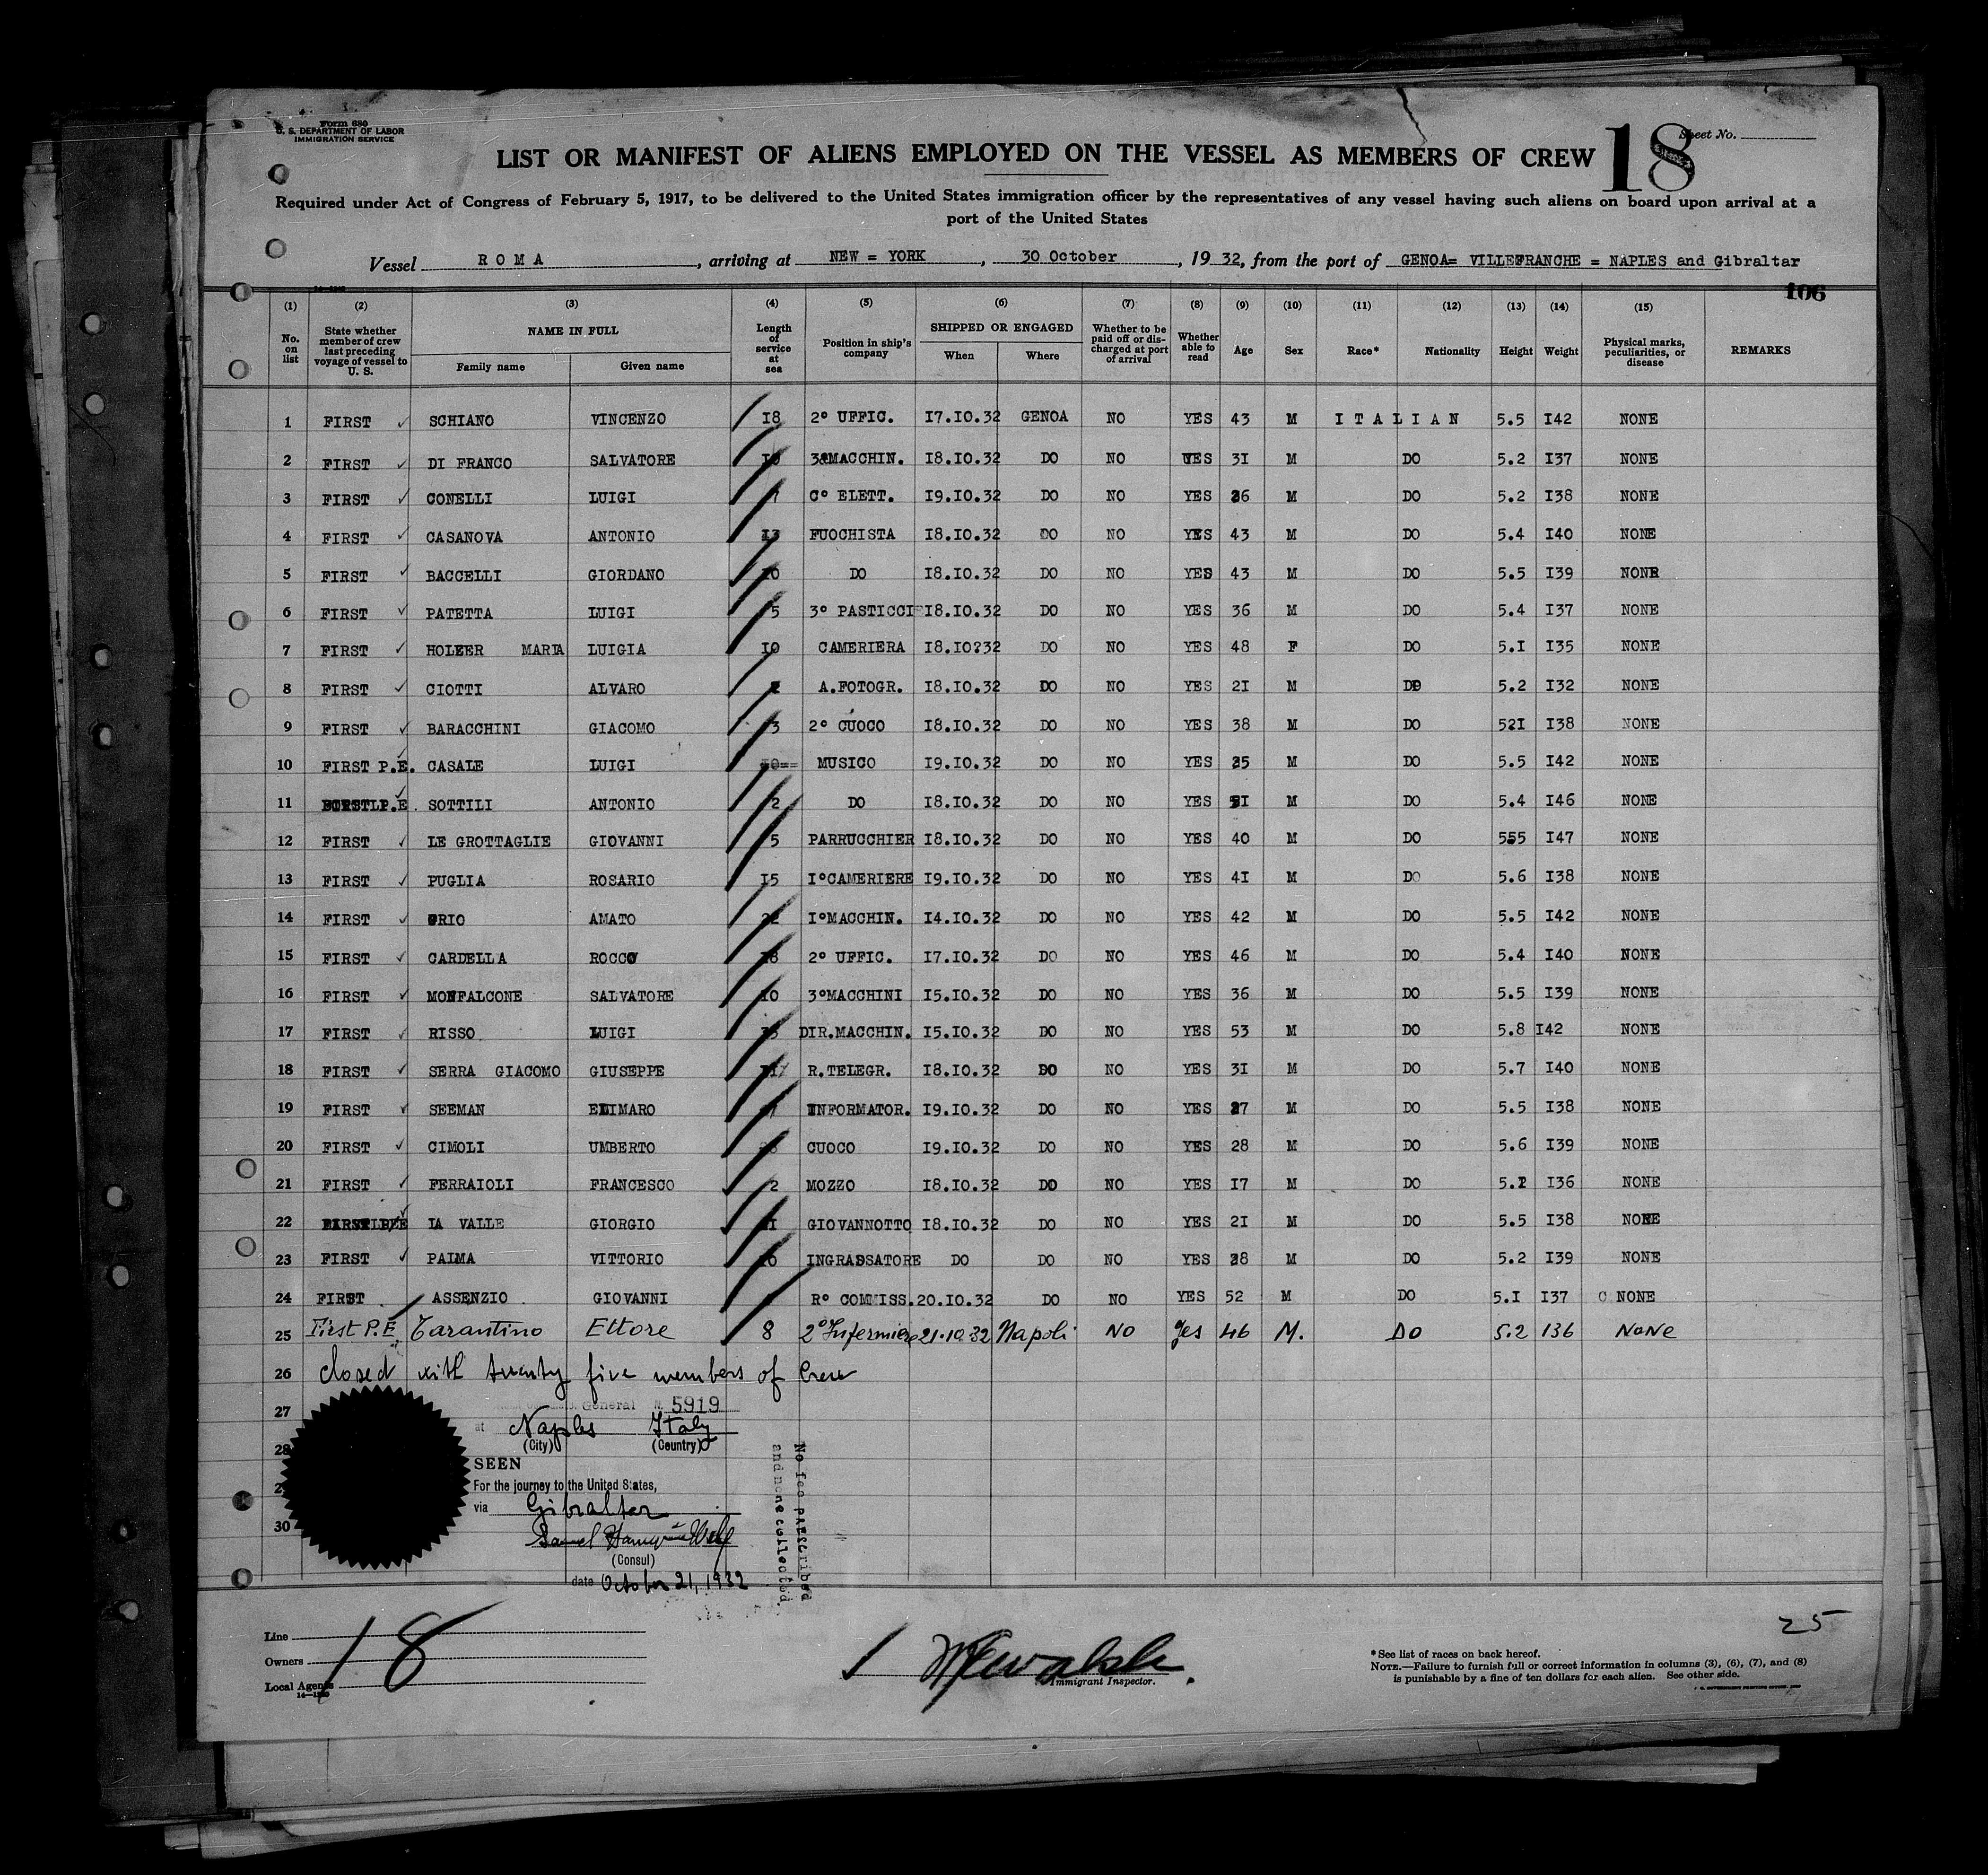 Form 680
U. S. DEPARTMENT OF LABOR
IMMIGRATION SERVICE
Sheet No.
18
LIST OR MANIFEST OF ALIENS EMPLOYED ON THE VESSEL AS MEMBERS OF CREW
Required under Act of Congress of February 5, 1917, to be delivered to the United States immigration officer by the representatives of any vessel having such aliens on board upon arrival at a
port of the United States
Vessel ROMA, arriving at NEW = YORK, 30 October, 19 32, from the port of GENOA= VILLEFRANCHE = NAPLES and Gibraltar
106
(1) (2) (3) (4) (5) (6) (7) (8) (9) (10) (11) (12) (13) (14) (15)
No. on list State whether member of crew last preceding voyage of vessel to U. S. NAME IN FULL Family name Given name Length of service at sea Position in ship's company SHIPPED OR ENGAGED When Where Whether to be paid off or discharged at port of arrival Whether able to read Age Sex Race* Nationality Height Weight Physical marks, peculiarities, or disease REMARKS
1 FIRST SCHIANO VINCENZO 18 2º UFFIC. 17.10.32 GENOA NO YES 43 M ITALIAN 5.5 142 NONE
2 FIRST DI FRANCO SALVATORE 3ºMACCHIN. 18.10.32 DO NO YES 31 M DO 5.2 137 NONE
3 FIRST CONELLI LUIGI Cº ELETT. 19.10.32 DO NO YES 26 M DO 5.2 138 NONE
4 FIRST CASANOVA ANTONIO 13 FUOCHISTA 18.10.32 DO NO YES 43 M DO 5.4 140 NONE
5 FIRST BACCELLI GIORDANO DO 18.10.32 DO NO YES 43 M DO 5.5 139 NONE
6 FIRST PATETTA LUIGI 5 3º PASTICCI 18.10.32 DO NO YES 36 M DO 5.4 137 NONE
7 FIRST HOLZER MARIA LUIGIA 10 CAMERIERA 18.10?32 DO NO YES 48 F DO 5.1 135 NONE
8 FIRST CIOTTI ALVARO A.FOTOGR. 18.10.32 DO NO YES 21 M DO 5.2 132 NONE
9 FIRST BARACCHINI GIACOMO 3 2º CUOCO 18.10.32 DO NO YES 38 M DO 5.1 138 NONE
10 FIRST P.E. CASALE LUIGI MUSICO 19.10.32 DO NO YES 25 M DO 5.5 142 NONE
11 P.E SOTTILI ANTONIO 2 DO 18.10.32 DO NO YES DO 5.4 146 NONE
12 FIRST LE GROTTAGLIE GIOVANNI 5 PARRUCCHIER 18.10.32 DO NO YES 40 M DO 555 147 NONE
13 FIRST PUGLIA ROSARIO 15 1ºCAMERIERE 19.10.32 DO NO YES 41 M DO 5.6 138 NONE
14 FIRST AMATO 22 1ºMACCHIN. 14.10.32 DO NO YES 42 M DO 5.5 142 NONE
15 FIRST CARDELLA ROCCO 2º UFFIC. 17.10.32 DO NO YES 46 M DO 5.4 140 NONE
16 FIRST MONFALCONE SALVATORE 10 3ºMACCHINI 15.10.32 DO NO YES 36 M DO 5.5 139 NONE
17 FIRST RISSO LUIGI DIR.MACCHIN. 15.10.32 DO NO YES 53 M DO 5.8 142 NONE
18 FIRST SERRA GIACOMO GIUSEPPE R.TELEGR. 18.10.32 DO NO YES 31 M DO 5.7 140 NONE
19 FIRST SEEMAN ELIMARO INFORMATOR. 19.10.32 DO NO YES 27 M DO 5.5 138 NONE
20 FIRST CIMOLI UMBERTO CUOCO 19.10.32 DO NO YES 28 M DO 5.6 139 NONE
21 FIRST FERRAIOLI FRANCESCO 2 MOZZO 18.10.32 DO NO YES 17 M DO 136 NONE
22 LA VALLE GIORGIO GIOVANNOTTO 18.10.32 DO NO YES 21 M DO 5.5 138 NONE
23 FIRST PALMA VITTORIO INGRASSATORE DO DO NO YES 28 M DO 5.2 139 NONE
24 FIRST ASSENZIO GIOVANNI Rº COMMISS. 20.10.32 DO NO YES 52 M DO 5.1 137 NONE
25 First P.E. Tarantino Ettore 8 2º Infermiere 21.10.32 Napoli NO Yes 46 M. DO 5.2 136 NoNe
26 closed with twenty five members of Crew
27 General 5919
at Naples Italy
(City) (Country)
28
SEEN
For the journey to the United States,
via Gibraltar
30
(Consul)
date October 21, 1932
No fee prescribed
and none collected.
25
Line
Owners
Local Agents
14—1240
18
Immigrant Inspector.
* See list of races on back hereof.
NOTE.—Failure to furnish full or correct information in columns (3), (6), (7), and (8)
is punishable by a fine of ten dollars for each alien. See other side.